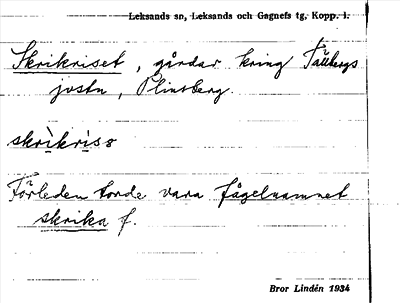 Leksands sn, Leksands och Gagnefs tg, Kopp. l.
Skrikriset, gårdar kring Tällbergs
justu, Plintsberg.
skrìkrìs
Förleden torde vara fågelnamnet
skrika f.
Bror Lindén 1934